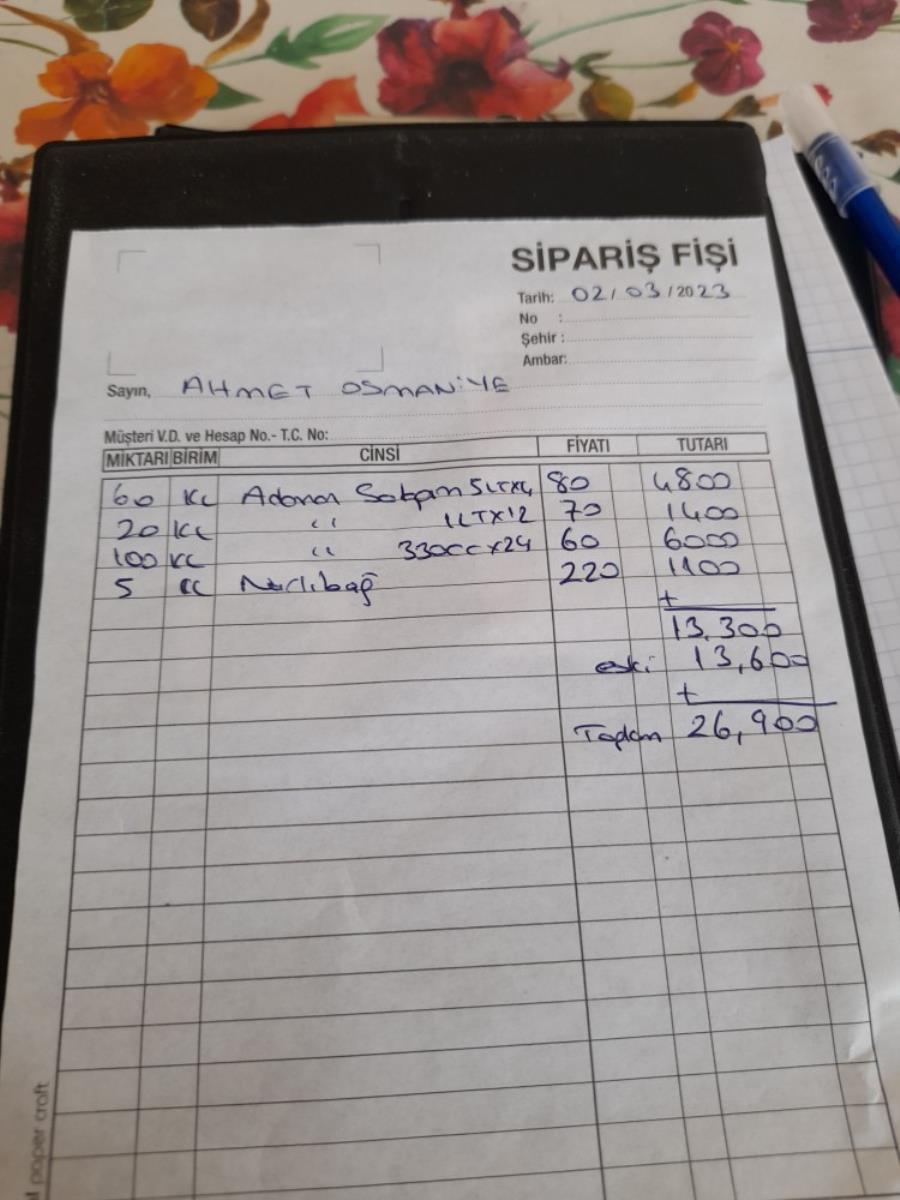 SİPARİŞ FİŞİ
Tarih: 02/03/2023
No :
Şehir :
Ambar:
Sayın, AHMET OSMANiYE
Müşteri V.D. ve Hesap No.- T.C. No:
MİKTARI BİRİM CİNSİ FİYATI TUTARI
60 KL Adana Şalgam 5LTX4 80 4800
20 KL " 1LTX12 70 1400
100 KL " 330CCX24 60 6000
5 KL Narlıbağ 220 1100
+
13.300
eski 13,600
+
Toplam 26,900
paper craft